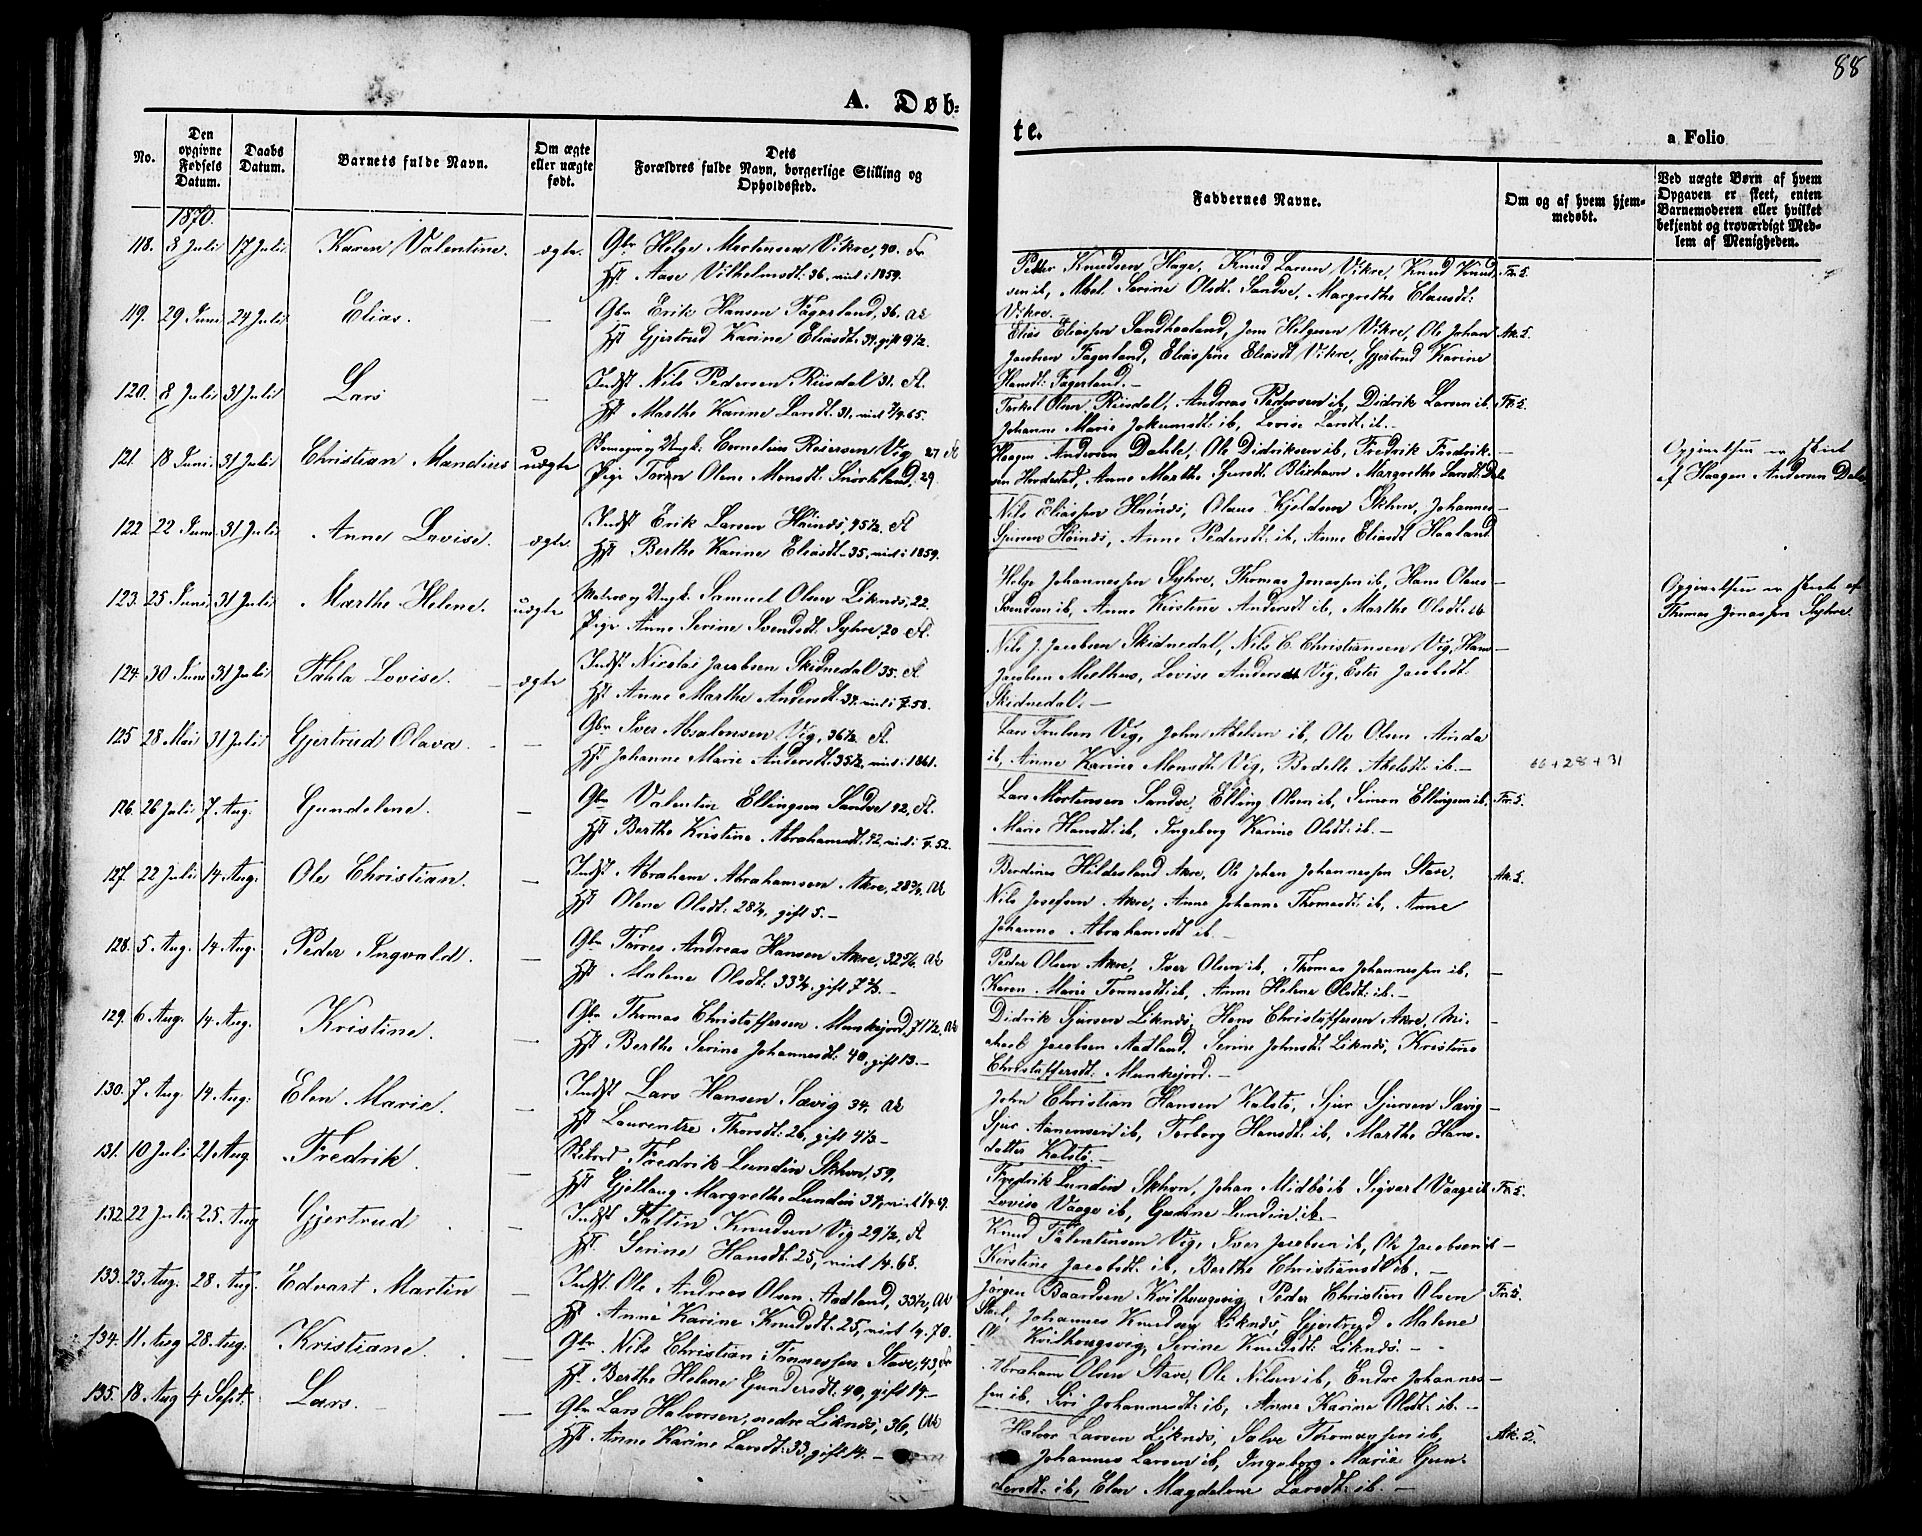 88
A. Døb-
te.
a Folio
No.
Den opgivne Fødsels Datum.
Daabs Datum.
Barnets fulde Navn.
Om ægte eller uægte født.
Dets Forældres fulde Navn, borgerlige Stilling og Opholdssted.
Faddernes Navne.
Om og af hvem hjemmedøbt.
Ved uægte Børn af hvem Opgaven er skeet, enten Barnemoderen eller hvilket bekjendt og troværdigt Medlem af Menigheden.
1870.
118. 8 Juli 17 Juli Karen Valentine. ægte. Gbr Helge Mortensen Vikre, 40. Fr
Hst. Aase Vilhelmsdt: 36, viet i 1859.
Petter Knudsen Hage, Knud Larsen Vikre, Knud Knud-
sen ib, Abel Serine Olsdt. Sandve, Margrethe Clausdt:
Vikre.
119. 29 Juni 24 Juli Elias. — Gbr Erik Hansen Fagerland, 36. Ak
Hst Gjertrud Karine Eliasdt: 34, gift 9 1/2.
Elias Eliassen Sandhaaland, Jens Helgesen Vikre, Ole Johan Ak. 5.
Jacobsen Fagerland, Eliassine Eliasdt Vikre, Gjertrud Karine
Hansdt: Fagerland. —
120. 8 Juli 31 Juli Lars — Indst Nils Pedersen Riisdal 31. Fl.
Hst Marthe Karine Larsdt. 31, viet 7/4 65.
Torkel Olsen Riisdal, Andreas Pedersen ib, Didrik Larsen ib.
Johanne Marie Jokumsdt: ib, Lovise Larsdt: ib. —
121. 18 Juni 31 Juli Christian Mandius uægte Ungk: Cornelius Reiersen Vig 27 Fl
Pige Toren Olene Monsdt. Snørteland, 29.
Haagen Andersen Dahle, Ole Didriksen ib, Fredrik Fredrik- —
sen Hordestad, Anne Marthe Sjursdt: Blixhavn Margrethe Larsdt: Dale
Opgivelsen er skeet
af Haagen Andersen Dale
122 22 Juni 31 Juli Anne Lovise. ægte. Indst Erik Larsen Høinæs, 45 1/2. Fl
Hst Berthe Karine Eliasdt. 35, viet i 1859.
Nils Eliassen Høinæs, Olaus Kjeldsen Skhen, Johannes —
Sjursen Høinæs, Anne Pedersdt: ib, Anne Eliasdt Haaland
123. 25 Juni 31 Juli Marthe Helene. uægte Ungk. Samuel Olsen Liknæs, 22.
Pige Anne Serine Svendsdt: Syhre, 20 Fl.
Helge Johannessen Syhre, Thomas Jonassen ib, Hans Olaus —
Svendsen ib, Anne Kristine Andersdt ib, Marthe Olsdt: ib
Opgivelsen er skeet af
Thomas Jonassen Syhre.
124. 30 Juni 31 Juli Tahla Lovise. — ægte Indst Nicolai Jacobsen Skidnedal 35. Fl
Hst Anne Marthe Andersdt: 34. viet i 58.
Nils J. Jacobsen Skidnedal, Nils C. Christiansen Vig, Hans —
Jacobsen Melhus, Lovise Andersdt Vig, Ester Jacobsdt.
Skidnedal: —
125 28 Mai 31 Juli Gjertrud Olava. — Gbr Iver Absalonsen Vig, 36 1/2 Fl.
Hst. Johanne Marie Andersdt: 35 1/2, viet i 1861.
Lars Truelsen Vig, John Abelsen ib, Ole Olsen Ainda
ib, Anne Karine Monsdt: Vig, Bodelle Akselsdt: ib. —
66+28+31
126. 26 Juli 7 Aug. Gundelene. — Gbr Valentin Ellingsen Sandve 42, Fl.
Hst Berthe Kristine Abrahamsdt: 42, viet i 52.
Lars Mortensen Sandve, Elling Olsen ib, Simon Ellingsen ib.
Marie Hansdt: ib, Ingeborg Karine Olsdt: ib. —
127. 22 Juli 14 Aug. Ole Christian. — Indst Abraham Abrahamsen Akre, 28 3/4, Ak
Hst Olene Olsdt: 28 1/4, gift 5. —
Berdines Hildesland Akre, Ole Johan Johannessen Stave, Ak. 5.
Nils Josefsen Akre, Anne Johanne Thomasdt: ib, Anne
Johanne Abrahamsdt ib. —
128. 5 Aug. 14 Aug. Peder Ingvald. — Gbr Torres Andreas Hansen Akre, 32 5/6, Ak
Hst Malene Olsdt: 33 1/4, gift 7 2/3. —
Peder Olsen Akre, Iver Olsen ib, Thomas Johannessen ib, —
Karen Marie Tonnesdt: ib, Anne Helene Olsdt: ib. —
129. 6 Aug. 14 Aug. Kristine. — Gbr Thomas Christoffersen Munkejord, 41 1/2, Ak
Hst Berthe Serine Johannesdt: 40, gift 13. —
Didrik Sjursen Liknæs, Hans Christoffersen Akre, Mi- —
chael Jacobsen Aadland, Serine Johnsdt: Liknæs, Kristine
Christoffersdt: Munkejord. —
130. 7 Aug. 14 Aug: Elen Marie. — Indst Lars Hansen Sævig 34, Ak
Hst Laurentze Thorsdt: 26, gift 4 1/3 —
John Christian Hansen Kalstø, Sjur Sjursen Sævig —
Sjur Aanensen ib, Torborg Hansdt: ib, Marthe Hans-
datter Kalstø. —
131. 10 Juli 21 Aug Fredrik. — Fredrik Lundin Skhen, 59,
Hst Gjøllaug Margrethe Lundin 34, viet
Fredrik Lundin Skhen, Johan Midbø ib Sigvart Vaage ib
Lovise Vaage ib, Gurine Lundin ib. —
132 22 Juli 25. Aug Gjertrud — Indst Faltin Knudsen Vig 29 1/2, Fl
Hst Serine Hansdt: 25, viet 68.
Knud Falentinsen Vig, Iver Jacobsen ib, Ole Jacobsen ib —
Kirstine Jacobsdt: ib, Berthe Christiansdt ib. —
133. 23. Aug. 28. Aug. Edvart Martin — Indst. Ole Andreas Olsen Aadland, 33 1/2, Ak
Hst Anne Karine Knudsdt: 25, viet 70.
Jørgen Baardsen Kvilhougsvig, Peder Christian Olsen
Johannes Knudsen Liknæs, Gjertrud Malene
Kvilhougsvig, Serine Knudsdt: Liknæs. —
134. 11. Aug 28. Aug. Kristiane. — Gbr Nils Christian Tønnessen Stave, 43, Fr
Hst. Berthe Helene Gundersdt: 40, gift 14. —
Abraham Olsen Stave, Ole Nilsen ib, Endre Johannes- —
sen ib, Siri Johannesdt: ib, Anne Karine Olsdt: ib. —
135. 18 Aug 4 Sept: Lars. — Gbr Lars Halvorsen, nedre Liknæs, 36, Ak
Hst Anne Karine Larsdt: 33, gift 14. —
Halvor Larsen Liknæs, Salve Thomassen ib, Ak. 5.
Johannes Larsen ib, Ingeborg Marie Gun-
dersdt: ib, Elen Magdelene Larsdt: ib. —